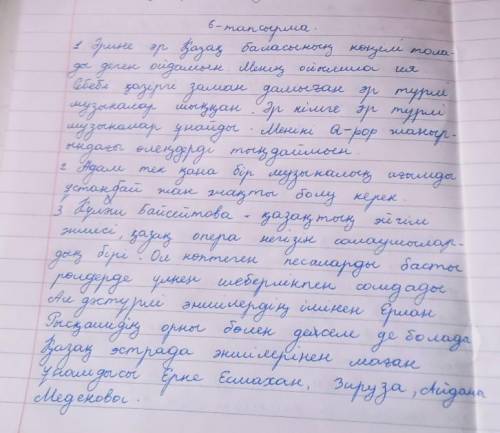 6-тапсырма.
1 Әрине әр Қазақ баласының көңілі тола-
ды деген ойдамын. Менің ойымша ия
Себебі қазіргі заман дамыған әр түрлі
музыкалар шыққан. Әр кімге әр түрлі
музыкалар ұнайды. Менікі Q-pop жаныр-
ындағы өлеңдерді тыңдаймын.
2 Адам тек қана бір музыкалық ағымды
ұстанбай жан жақты болу керек.
3 Күлаш Байсейітова - қазақтың әйгілі
әншісі, қазақ опера негізін салаушылар-
дың бірі. Ол көптеген песаларды басты
рөлдерде үлкен шеберлікпен сомдады
Ал дәстүрлі әншілердің ішінен Ерлан
Рысқалидің орны бөлек десек те болады
Қазақ эстрада әншілерінен маған
ұнамдысы Ерке Есмахан, Зируза, Айдана
Меденова.